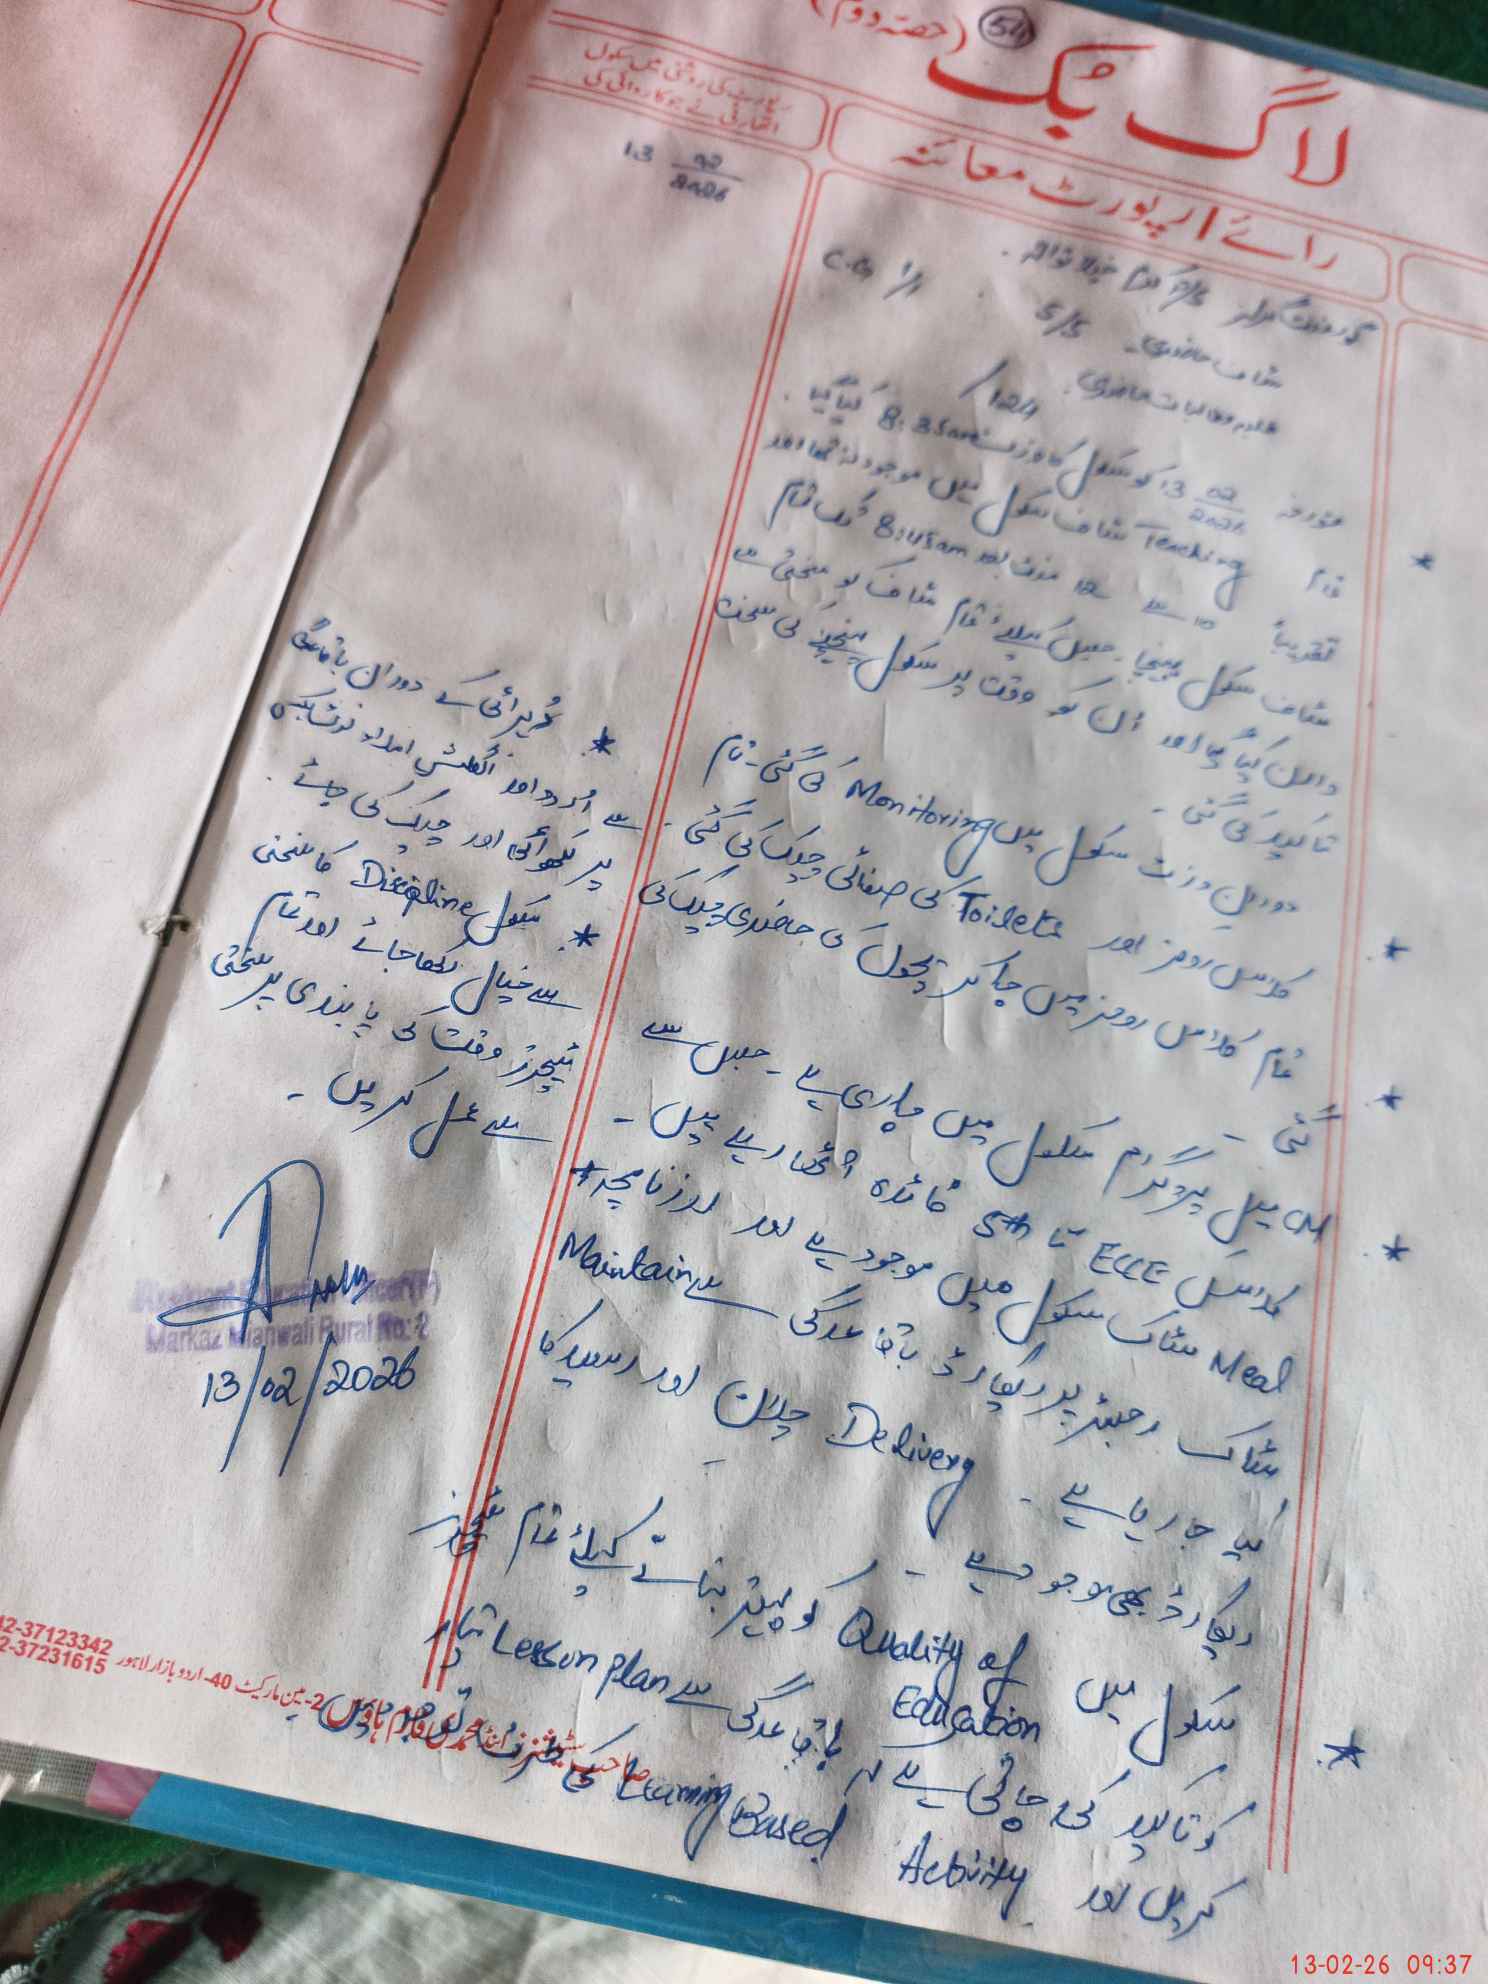 54
لاگ بک (حصہ دوم)
رائے / رپورٹ معائنہ
رپورٹ کی روشنی میں سکول
اتھارٹی نے جو کاروائی کی
13 02/2026
گورنمنٹ P/S
C.G 1/1
سٹاف حاضری۔ 5/5
طلبہ و طالبات حاضری۔ 124/
مورخہ 13 02/2026 کو سکول کا وزٹ 8:35am کیا گیا۔
* تمام Teaching سٹاف سکول میں موجود نہ تھا اور
تقریباً 10 سے 12 منٹ بعد 8:45am تک تمام
سٹاف سکول پہنچا۔ جس کیلئے تمام سٹاف کو سختی سے
وارن کیا گیا اور ان کو وقت پر سکول پہنچنے کی سخت
تاکید کی گئی۔
* دوران وزٹ سکول میں Monitoring کی گئی۔ تمام
کلاس رومز اور Toilets کی صفائی چیک کی گئی۔
* تمام کلاس رومز میں جا کر بچوں کی حاضری چیک کی
گئی۔
* CM میل پروگرام سکول میں جاری ہے۔ جس سے
کلاس ECCE تا 5th فائدہ اٹھا رہے ہیں۔
Meal سٹاک سکول میں موجود ہے اور روزنامچہ *
سٹاک رجسٹر پر ریکارڈ باقاعدگی سے Maintain
کیا جا رہا ہے۔ Delivery چلان اور رسید کا
ریکارڈ بھی موجود ہے۔
* سکول میں Quality of Education کو بہتر بنانے کیلئے تمام ٹیچرز
کو تاکید کی جاتی ہے کہ باقاعدگی سے Lesson plan تیار
کریں اور Learning Based Activity کی طرف توجہ دیں
* تحریرائی کے دوران باقاعدگی
سے اُردو اور انگلش املاء نوٹ بکس
پر لکھوائی اور چیک کی جائے۔
* سکول Discipline کا سختی
سے خیال رکھا جائے اور تمام
ٹیچرز وقت کی پابندی پر سختی
سے عمل کریں۔
Assistant Education Officer(F)
Markaz Mianwali Rural No: 2
13/02/2026
2-مین مارکیٹ 40-اردو بازار لاہور
12-37123342
2-37231615
13-02-26 09:37